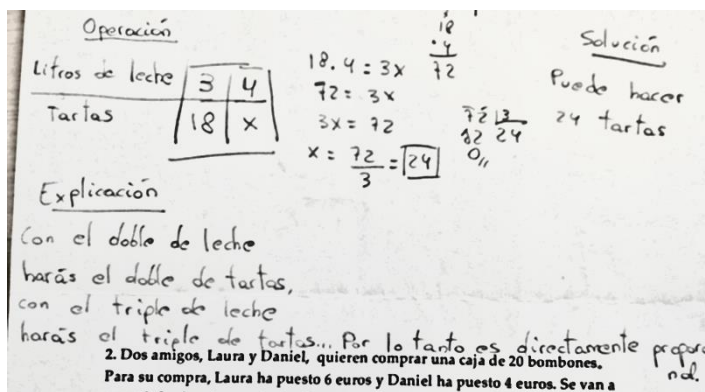 Operación
Litros de leche 3 4
Tartas 18 x
18 . 4 = 3x
72 = 3x
3x = 72
x = 72/3 = 24
18
. 4
72
72 3
12 24
0,,
Solución
Puede hacer
24 tartas
Explicación
Con el doble de leche
harás el doble de tartas,
con el triple de leche
harás el triple de tartas... Por lo tanto es directamente propor
nal.
2. Dos amigos, Laura y Daniel, quieren comprar una caja de 20 bombones.
Para su compra, Laura ha puesto 6 euros y Daniel ha puesto 4 euros. Se van a